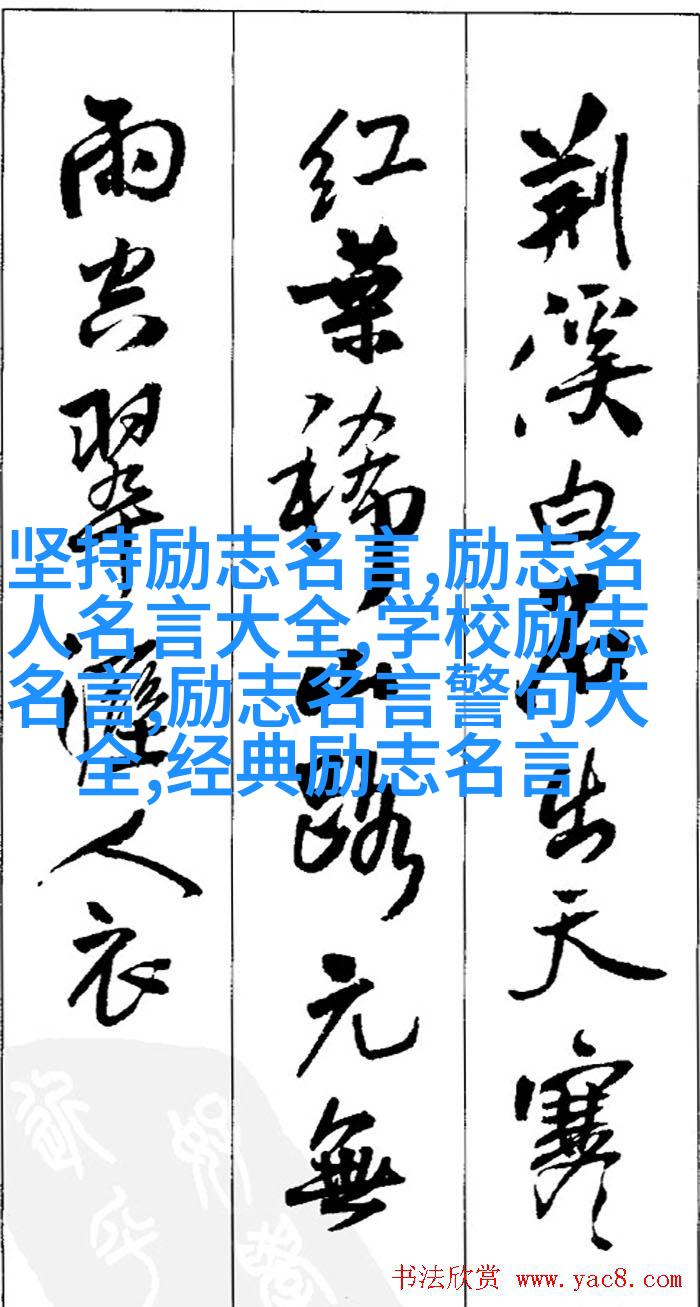 荆溪白石出天寒
红葉稀山路元無
雨空翠濕人衣
坚持励志名言,励志名
人名言大全,学校励志
名言,励志名言警句大
全,经典励志名言
书法欣赏 www.yac8.com